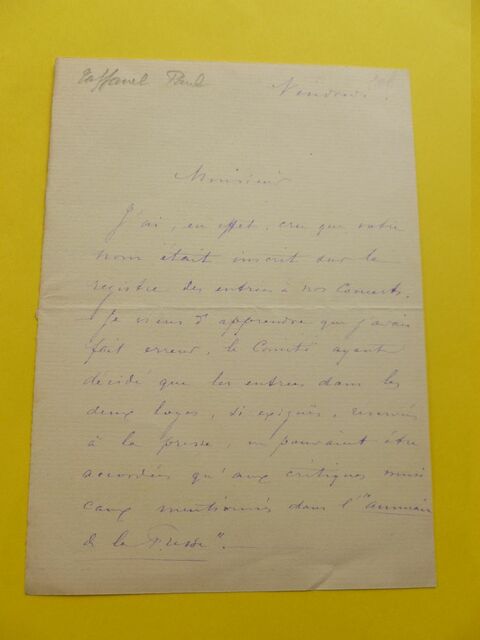 Taffanel Paul
Vendredi.
Monsieur
J'ai, en effet, cru que votre
nom était inscrit sur le
registre des entrées à nos Concerts.
Je viens d'apprendre que j'avais
fait erreur, le Comité ayant
décidé que les entrées dans les
deux loges, si exigües, réservées
à la presse, ne pouvaient être
accordées qu'aux critiques musi
caux mentionnés dans l'"Annuaire
de la Presse".